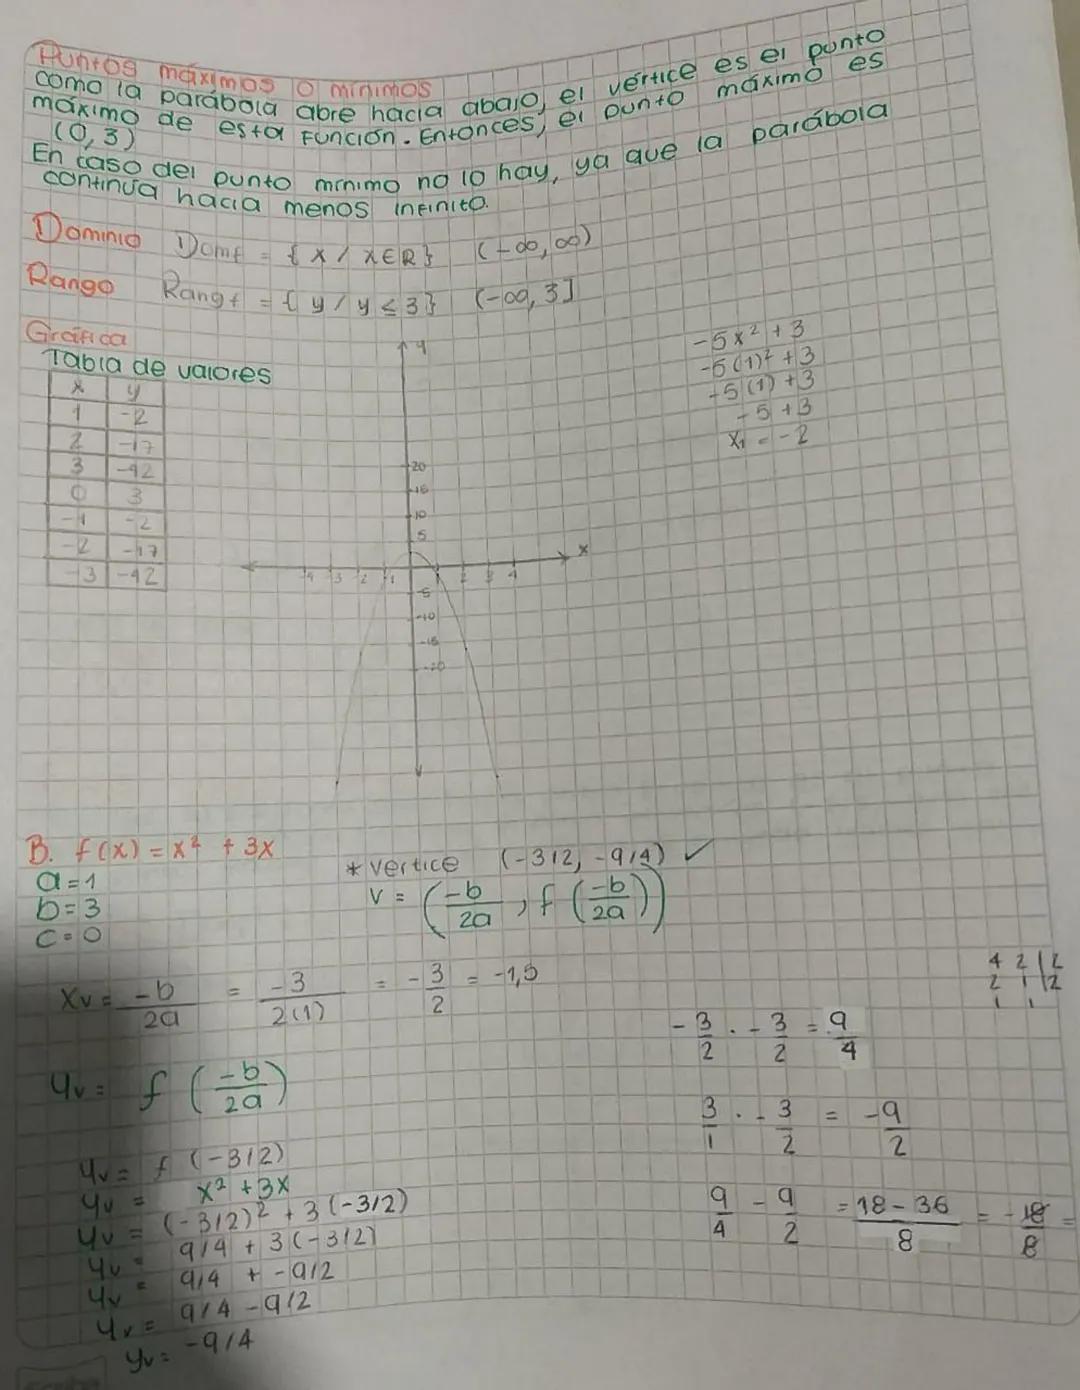 Puntos máximos o mínimos
como la parábola abre hacia abajo, el vértice es el punto
máximo de esta función. Entonces, el punto máximo es
(0,3)
En caso del punto mínimo no lo hay, ya que la parábola
continúa hacia menos infinito.
Dominio Domf = { x / x∈R} (-∞,∞)
Rango Rangf = { y / y ≤ 3} (-∞, 3]
Gráfica
Tabla de valores
x y
1 -2
2 -17
3 -42
0 3
-1 -2
-2 -17
-3 -42
y
20
15
10
5
x
-4 -3 -2 -1 2 3 4
-5
-10
-15
-20
-5x² + 3
-5(1)² + 3
-5(1) + 3
-5 + 3
x₁ = -2
B. f(x) = x² + 3x
a = 1
b = 3
c = 0
* vertice (-3/2, -9/4) ✓
V = (-b/2a, f(-b/2a))
Xv = -b/2a = -3/2(1) = -3/2 = -1,5
4 2 | 2
2 1 | 2
1 1
-3/2 · -3/2 = 9/4
Yv = f(-b/2a)
3/1 · -3/2 = -9/2
Yv = f(-3/2)
Yv = x² + 3x
Yv = (-3/2)² + 3(-3/2)
Yv = 9/4 + 3(-3/2)
Yv = 9/4 + -9/2
Yv = 9/4 - 9/2
Yv = -9/4
9/4 - 9/2 = 18 - 36/8 = -18/8 =